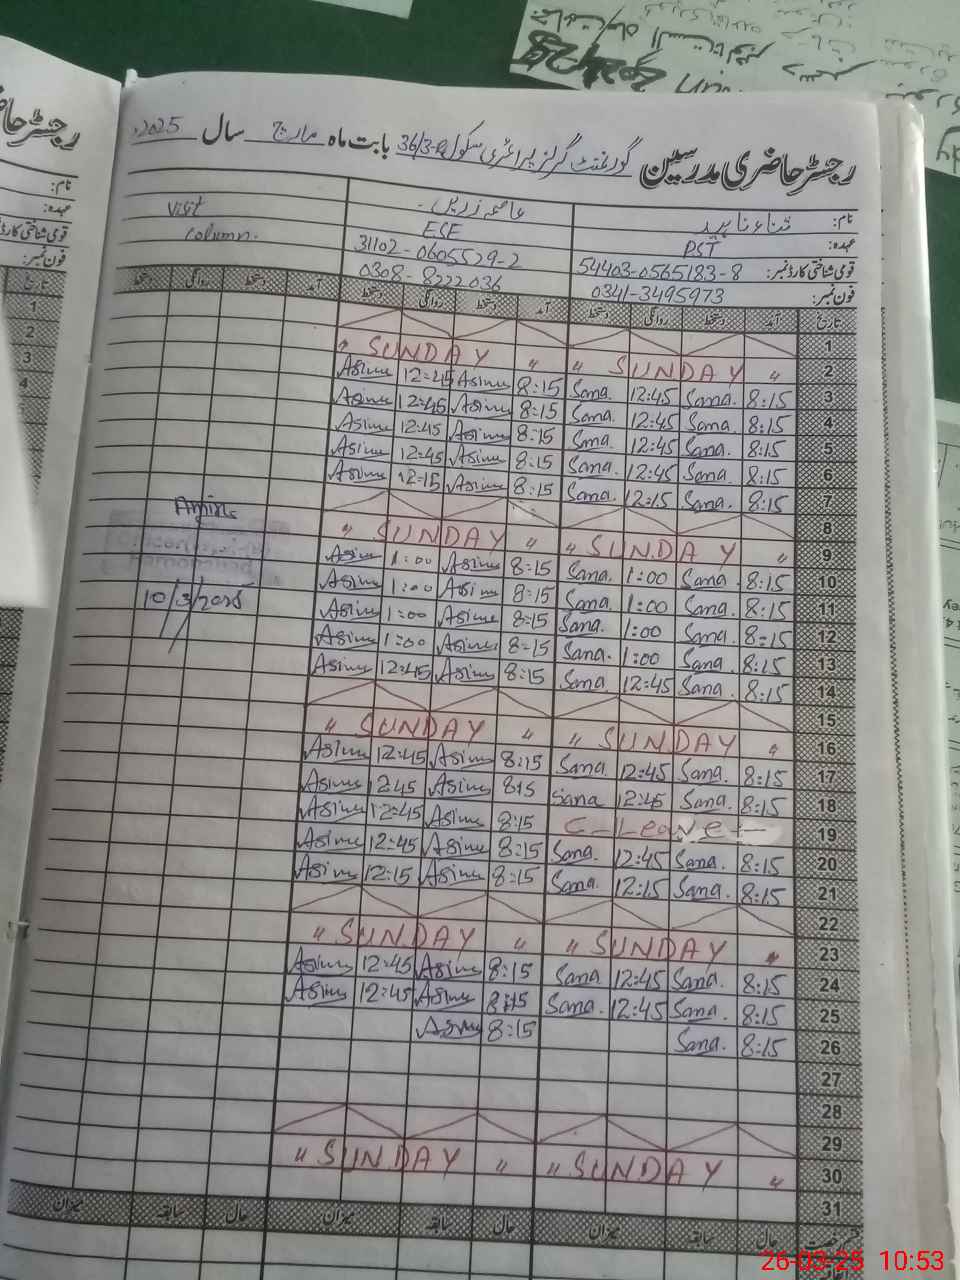 رجسٹر حاضری مدرسین گورنمنٹ گرلز پرائمری سکول 36/3-R بابت ماہ مارچ سال 2025ء
نام: ثناء ناہید عاصمہ زریں Visit
عہدہ: PST ESE column.
قومی شناختی کارڈ نمبر: 54403-0565183-8 31102-0605529-2
فون نمبر: 0341-3495973 0308-8222036
تاریخ آمد دستخط روانگی دستخط آمد دستخط روانگی دستخط آمد دستخط روانگی دستخط
1
2 " SUNDAY " " SUNDAY "
3 8:15 Sana. 12:45 Sana. 8:15 Asima 12:45 Asima
4 8:15 Sana. 12:45 Sana. 8:15 Asima 12:45 Asima
5 8:15 Sana. 12:45 Sana. 8:15 Asima 12:45 Asima
6 8:15 Sana. 12:45 Sana. 8:15 Asima 12:45 Asima
7 8:15 Sana. 12:15 Sana. 8:15 Asima 12:15 Asima
8
9 " SUNDAY " " SUNDAY "
10 8:15 Sana 1:00 Sana. 8:15 Asima 1:00 Asima
11 8:15 Sana. 1:00 Sana. 8:15 Asima 1:00 Asima
12 8:15 Sana. 1:00 Sana. 8:15 Asima 1:00 Asima
13 8:15 Sana. 1:00 Sana. 8:15 Asima 1:00 Asima
14 8:15 Sana. 12:45 Sana. 8:15 Asima 12:45 Asima
10/3/2025
15
16 " SUNDAY " " SUNDAY "
17 8:15 Sana. 12:45 Sana. 8:15 Asima 12:45 Asima
18 8:15 Sana. 12:45 Sana 8:15 Asima 12:45 Asima
19 C-Leave 8:15 Asima 12:45 Asima
20 8:15 Sana. 12:45 Sana. 8:15 Asima 12:45 Asima
21 8:15 Sana. 12:15 Sana. 8:15 Asima 12:15 Asima
22
23 " SUNDAY " " SUNDAY "
24 8:15 Sana. 12:45 Sana 8:15 Asima 12:45 Asima
25 8:15 Sana. 12:45 Sana. 8:15 Asima 12:45 Asima
26 8:15 Sana. 8:15 Asima
27
28
29
30 " SUNDAY " " SUNDAY "
31
حال سابقہ میزان حال سابقہ میزان حال سابقہ میزان
26-03-25 10:53